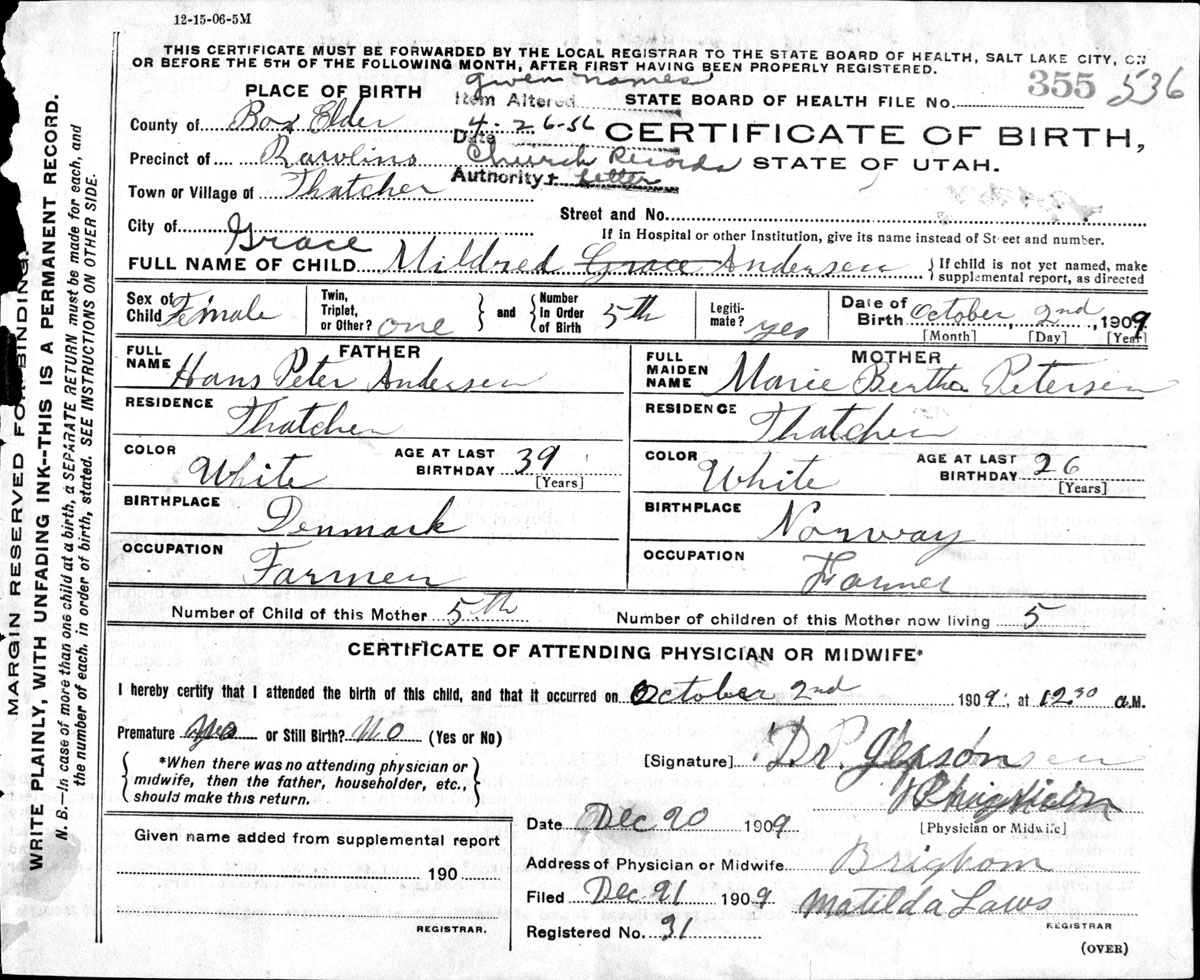 12-15-06-5M
THIS CERTIFICATE MUST BE FORWARDED BY THE LOCAL REGISTRAR TO THE STATE BOARD OF HEALTH, SALT LAKE CITY, ON
OR BEFORE THE 5TH OF THE FOLLOWING MONTH, AFTER FIRST HAVING BEEN PROPERLY REGISTERED.
given names
PLACE OF BIRTH Item Altered STATE BOARD OF HEALTH FILE No. 355 536
County of Box Elder Date 4-26-56 CERTIFICATE OF BIRTH,
Precinct of Rawlins Church Records STATE OF UTAH.
Town or Village of Thatcher Authority + Letter
Street and No.
City of If in Hospital or other Institution, give its name instead of Street and number.
Grace
FULL NAME OF CHILD Mildred Grace Andersen { If child is not yet named, make
supplemental report, as directed
Sex of Child Female Twin, Triplet, or Other? one } and { Number in Order of Birth 5th Legiti- mate? yes Date of Birth October 2nd, 1909
[Month] [Day] [Year]
FATHER MOTHER
FULL NAME Hans Peter Andersen FULL MAIDEN NAME Marie Bertha Petersen
RESIDENCE Thatcher RESIDENCE Thatcher
COLOR White AGE AT LAST BIRTHDAY 39 [Years] COLOR White AGE AT LAST BIRTHDAY 26 [Years]
BIRTHPLACE Denmark BIRTHPLACE Norway
OCCUPATION Farmer OCCUPATION Farmer
Number of Child of this Mother 5th Number of children of this Mother now living 5
CERTIFICATE OF ATTENDING PHYSICIAN OR MIDWIFE*
I hereby certify that I attended the birth of this child, and that it occurred on October 2nd 1909, at 12 30 a.M.
Premature or Still Birth? No (Yes or No)
{ *When there was no attending physician or
midwife, then the father, householder, etc.,
should make this return. }
[Signature] Dr.
Physician
[Physician or Midwife]
Date Dec 20 1909
Address of Physician or Midwife Brigham
Filed Dec 21 1909 Matilda Laws
REGISTRAR
Registered No. 31
(OVER)
Given name added from supplemental report
190
REGISTRAR.
MARGIN RESERVED FOR BINDING.
WRITE PLAINLY, WITH UNFADING INK--THIS IS A PERMANENT RECORD.
N. B.—In case of more than one child at a birth, a SEPARATE RETURN must be made for each, and
the number of each. in order of birth, stated. SEE INSTRUCTIONS ON OTHER SIDE.